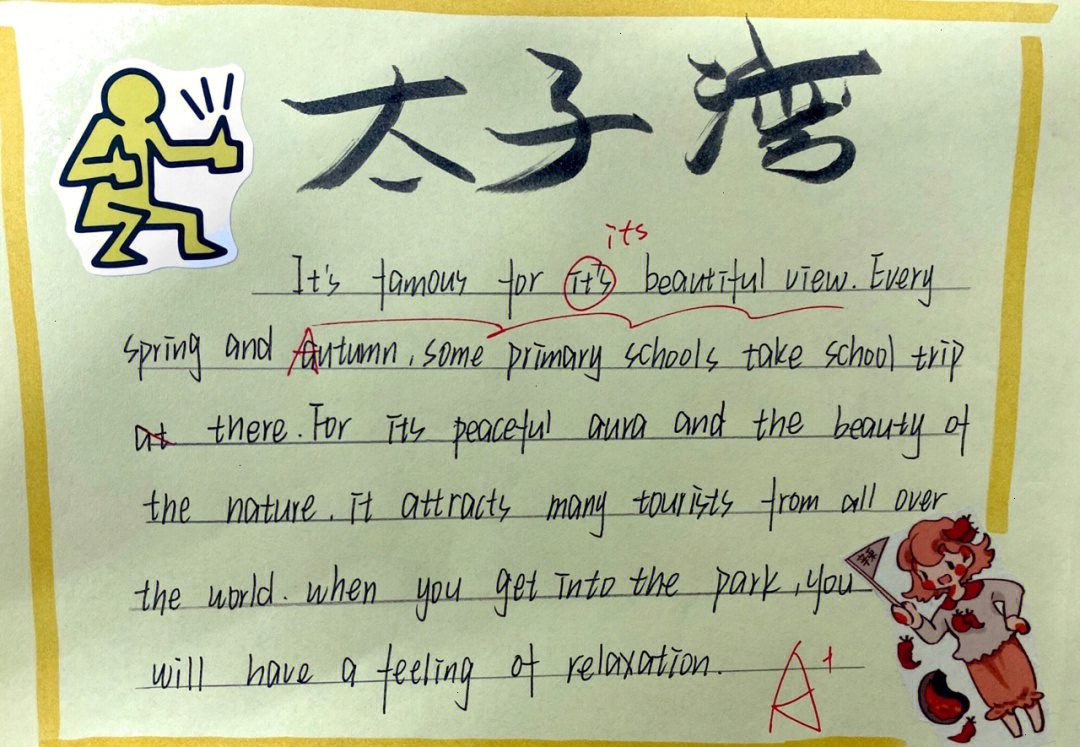 太子湾
its
It's famous for it's beautiful view. Every
spring and Autumn, some primary schools take school trip
at there. For its peaceful aura and the beauty of
the nature. it attracts many tourists from all over
the world. when you get into the park, you
will have a feeling of relaxation.
辣
A+